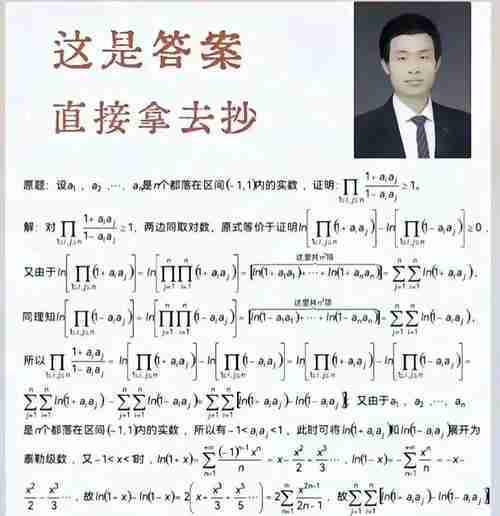 这是答案
直接拿去抄
原题：设a₁ ，a₂ ，⋯，aₙ是n个都落在区间(-1,1)内的实数，证明：∏_{1≤i,j≤n} (1+aᵢaⱼ)/(1-aᵢaⱼ) ≥1。
解：对∏_{1≤i,j≤n} (1+aᵢaⱼ)/(1-aᵢaⱼ) ≥1，两边同取对数，原式等价于证明ln[∏_{1≤i,j≤n}(1+aᵢaⱼ)]-ln[∏_{1≤i,j≤n}(1-aᵢaⱼ)]≥0，
这里共n²项
又由于ln[∏_{1≤i,j≤n}(1+aᵢaⱼ)]=ln[∏_{j=1}^{n}∏_{i=1}^{n}(1+aᵢaⱼ)]=[ln(1+a₁a₁)+⋯+ln(1+aₙaₙ)]=∑_{j=1}^{n}∑_{i=1}^{n}ln(1+aᵢaⱼ)，
这里共n²项
同理知ln[∏_{1≤i,j≤n}(1-aᵢaⱼ)]=ln[∏_{j=1}^{n}∏_{i=1}^{n}(1-aᵢaⱼ)]=[ln(1-a₁a₁)+⋯+ln(1-aₙaₙ)]=∑_{j=1}^{n}∑_{i=1}^{n}ln(1-aᵢaⱼ)，
所以∏_{1≤i,j≤n} (1+aᵢaⱼ)/(1-aᵢaⱼ)=ln[∏_{1≤i,j≤n}(1+aᵢaⱼ)]-ln[∏_{1≤i,j≤n}(1-aᵢaⱼ)]=ln[∏_{1≤i,j≤n}(1+aᵢaⱼ)]-ln[∏_{1≤i,j≤n}(1-aᵢaⱼ)]=
∑_{j=1}^{n}∑_{i=1}^{n}ln(1+aᵢaⱼ)-∑_{j=1}^{n}∑_{i=1}^{n}ln(1-aᵢaⱼ)=∑_{j=1}^{n}∑_{i=1}^{n}[ln(1+aᵢaⱼ)-ln(1-aᵢaⱼ)]，又由于a₁ ，a₂ ，⋯，aₙ
是n个都落在区间(-1,1)内的实数，所以有-1<aᵢaⱼ<1，此时可将ln(1+aᵢaⱼ)和ln(1-aᵢaⱼ)展开为
泰勒级数，又-1<x<1时，ln(1+x)=∑_{n=1}^{+∞} (-1)ⁿ⁻¹xⁿ/n =x-x²/2+x³/3-⋯，ln(1-x)=-∑_{n=1}^{+∞} xⁿ/n=-x-
x²/2-x³/3-⋯，故ln(1+x)-ln(1-x)=2(x+x³/3+x⁵/5+⋯)=2∑_{n=1}^{+∞} x²ⁿ⁻¹/(2n-1)，故∑_{j=1}^{n}∑_{i=1}^{n}[ln(1+aᵢaⱼ)-ln(1-aᵢaⱼ)]